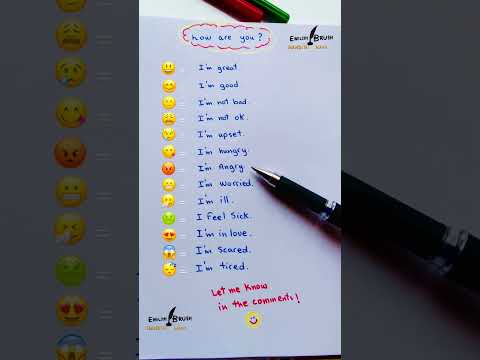 how are you?
ENGLISH BRUSH
= I'm great
= I'm good
= I'm not bad.
= I'm not ok.
= I'm upset.
= I'm hungry.
= I'm Angry.
= I'm worried.
= I'm ill.
= I feel Sick.
= I'm in love.
= I'm Scared.
= I'm tired.
Let me know
in the comments!
ENGLISH BRUSH